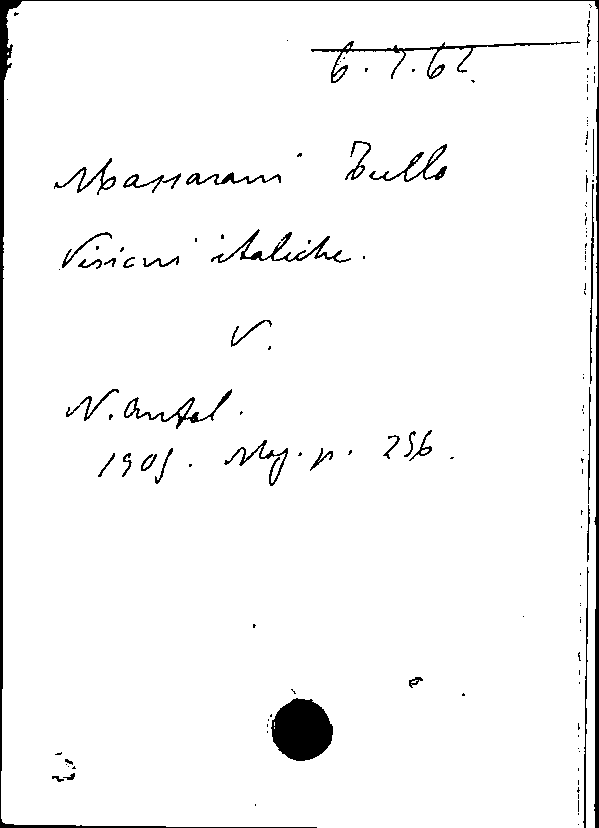 6.7.62.
Massarani Tullo
Visioni italiche.
V.
N. Antol.
1905. Mag. p. 256.